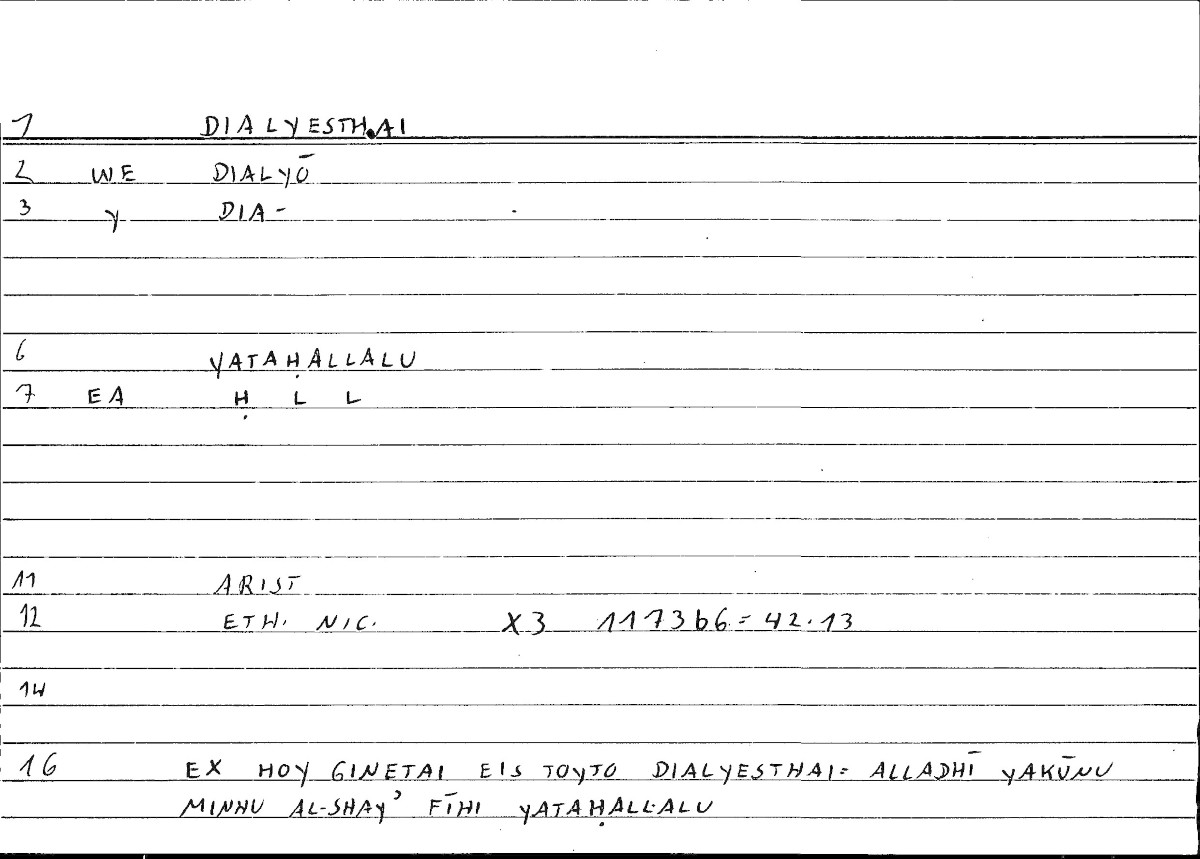 1 DIALYESTHAI
2 WE DIALYŌ
3 Y DIA-
6 YATAḤALLALU
7 EA Ḥ L L
11 ARIST
12 ETH. NIC. X3 1173b6 = 42.13
14
16 EX HOY GINETAI EIS TOYTO DIALYESTHAI = ALLADHĪ YAKŪNU
MINHU AL-SHAYʾ FĪHI YATAḤALLALU